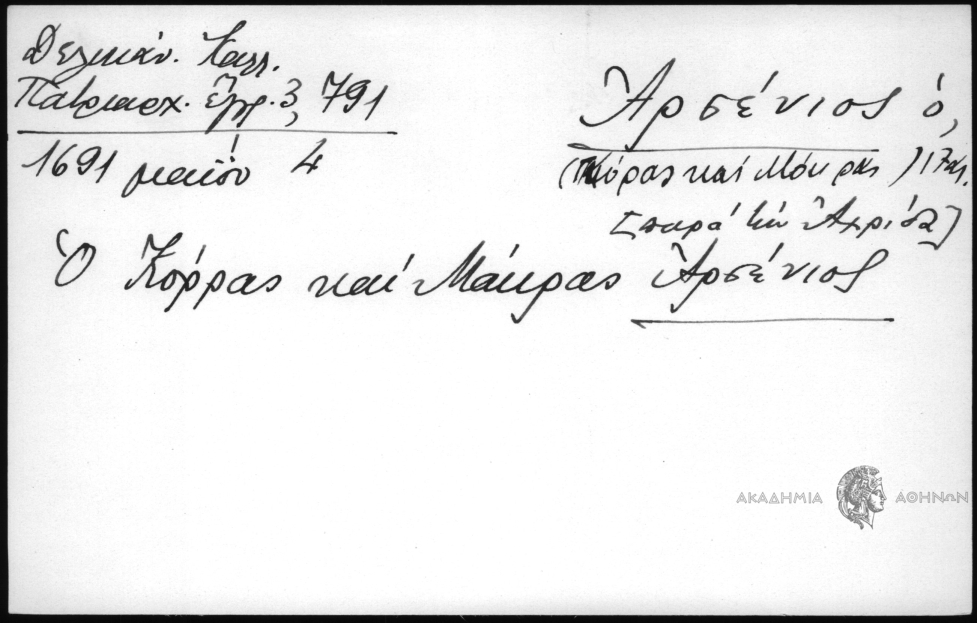 Δελικάν. Καλλ.
Πατριαρχ. ἔγγρ. 3, 791
1691 μαΐου 4
Ἀρσένιος ὁ,
(Κόρρας καί Μόκρας) 17 αἰ.
[παρά τήν Ἀχρίδα]
Ὁ Κόρρας καί Μόκρας Ἀρσένιος
ΑΚΑΔΗΜΙΑ ΑΘΗΝΩΝ